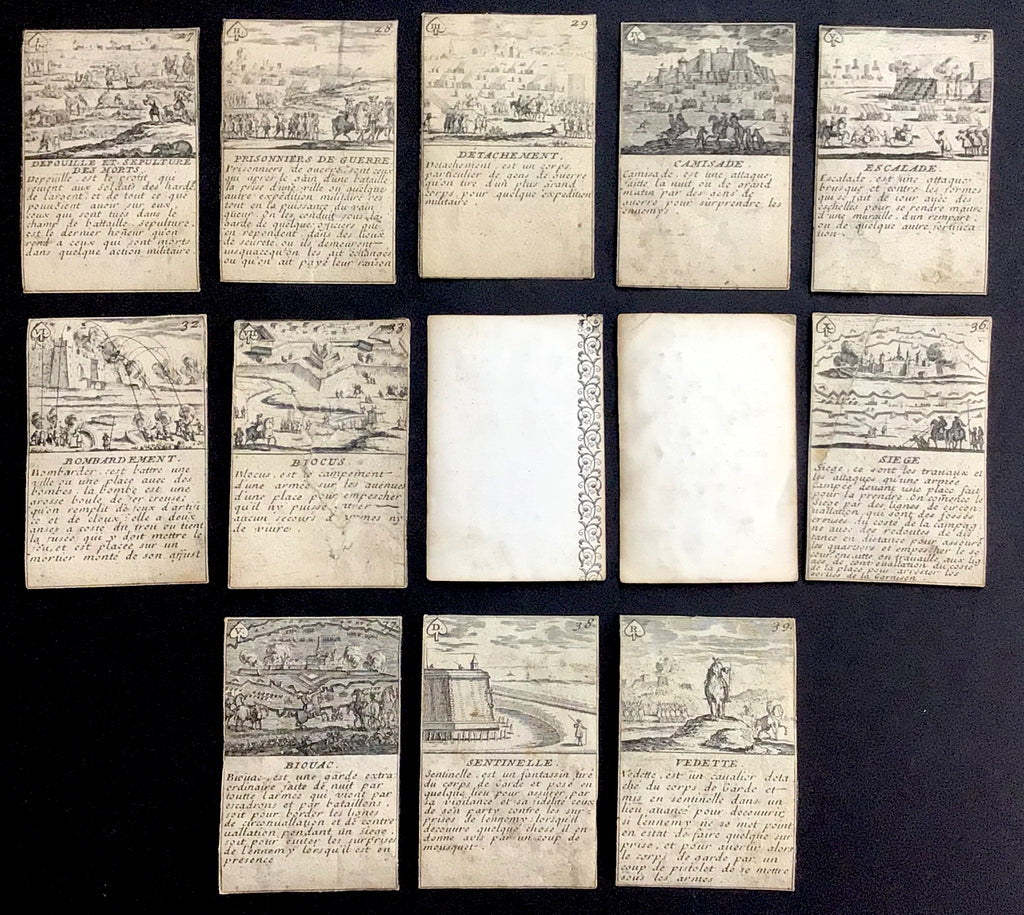 I 27
DEPOUILLE ET SEPULTURE
DES MORTS
Depouille est le profit, qui
revient aux Soldats des hardes
de l'argent, et de tout ce que
pouvoient avoir sur eux
ceux qui sont tués dans le
champ de battaille, sepulture,
est le dernier honeur qu'on
rend a ceux qui sont morts
dans quelque action militaire
II 28
PRISONNIERS DE GUERRE
Prisonniers de guerre, sont ceux
qui dans une bataille, dans
la prise d'une ville ou quelque
autre expedition militaire res
tent en la puissance du vain
queur. On les conduit sous la
garde de quelque oficiers qui
en repondent, dans des lieux
de seureté, ou ils demeurent
jusqua ce qu'on les ait échangés
ou qu'on ait payé leur ranson
III 29
DETACHEMENT.
Detachement, est un corps
particulier de gens de guerre
qu'on tire d'un plus grand
corps, pour quelque expedition
militaire.
IV
CAMISADE
Camisade, est une attaque,
faite la nuit ou de grand
matin par des gens de
guerre pour surprendre les
ennemys
V 31
ESCALADE.
Escalade, est une attaque
brusque et contre les formes
qui se fait de jour avec des
eschelles pour se rendre maitre
d'une muraille, d'un rempare,
ou de quelque autre fortifica
tion.
VI 32
BOMBARDEMENT.
Bombarder, c'est battre une
ville ou une place avec des
bombes, la bombe est une
grosse boule de fer creuse,
qu'on remplit de feux d'artifi
ce et de cloux, elle a deux
anses a costé du trou ou tient
la fusée, qui y doit mettre le
feu, et est placée sur un
mortier monté de son affust
VII 33
BLOCUS.
Blocus, est le campement
d'une armée sur les avenues
d'une place pour empescher
qu'il n'y puisse entrer
aucun secours d'hommes ny
de vivre
X 36
SIEGE
Siege, ce sont les travaux et
les attaques qu'une armée
campée devant une place fait
pour la prendre. On comence le
siege par des lignes de circon
uallation, qui sont des fossés
creusés du costé de la campag
ne avec des redoutes de dis
tance en distance pour assurer
les quartiers et empescher le se
cour ensuitte on travaille aux lig
nes de contreuallation du costé
de la place pour arrester les
sorties de la Garnison
V 37
BIOUAC.
Biouac, est une garde extra
ordinaire faite de nuit par
toutte l'armée qui vient par
escadrons et par bataillons,
soit pour border les lignes
de circonuallation et de contre
uallation pendant un siege
soit pour éviter les surprises
de l'ennemy lorsqu'il est en
presence
D 38
SENTINELLE.
Sentinelle, est un fantassin tiré
du corps de Garde et posé en
quelque lieu pour assurer par
sa vigilance et sa fidelité ceux
de son party contre les sur
prises de l'ennemy: lorsqu'il
decouvre quelque chose il en
donne avis par un coup de
mousquet.
R 39
VEDETTE.
Vedette, est un cavalier deta
ché du corps de Garde et
mis en sentinelle dans un
lieu avancé pour decouvrir,
si l'ennemy ne se met point
en estat de faire quelque sur
prise, et pour avertir alors
le corps de garde par un
coup de pistolet de se mettre
sous les armes.